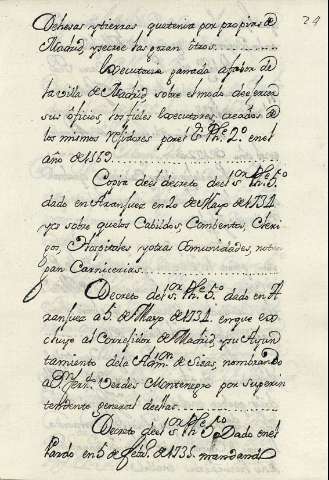 24
Dehesas y tierras que tenia por propias de
Madrid, y se cree las gozan otros.
Executoria ganada a favor de
la villa de Madrid, sobre el modo de exercer
sus oficios, los fieles executores, creados de
los mismos Rexidores por el Sr. Phe. 2º en el
año de 1563
Copia de el decreto de el Sor. Phe. 5º
dado en Aranjuez en 20 de Mayo de 1734
y es sobre que los Cabildos, Combentos, Clerigos,
pos, Hospitales y otras Comunidades, no tengan
pan Carnicerias.
Decreto del Sor. Phe. 5º dado en A
ranjuez a 5 de Mayo de 1734. en que ex
cluyo al Corregidor de Madrid, y su Ayun
tamiento de la Admon. de Sisas, nombrando
a Dn. Ferndo. Verdes Montenegro por superin
tendente general de ellas.
Decreto del Sor. Phe. 5º Dado en el
Pardo en 5 de Febo. de 1735. mandando